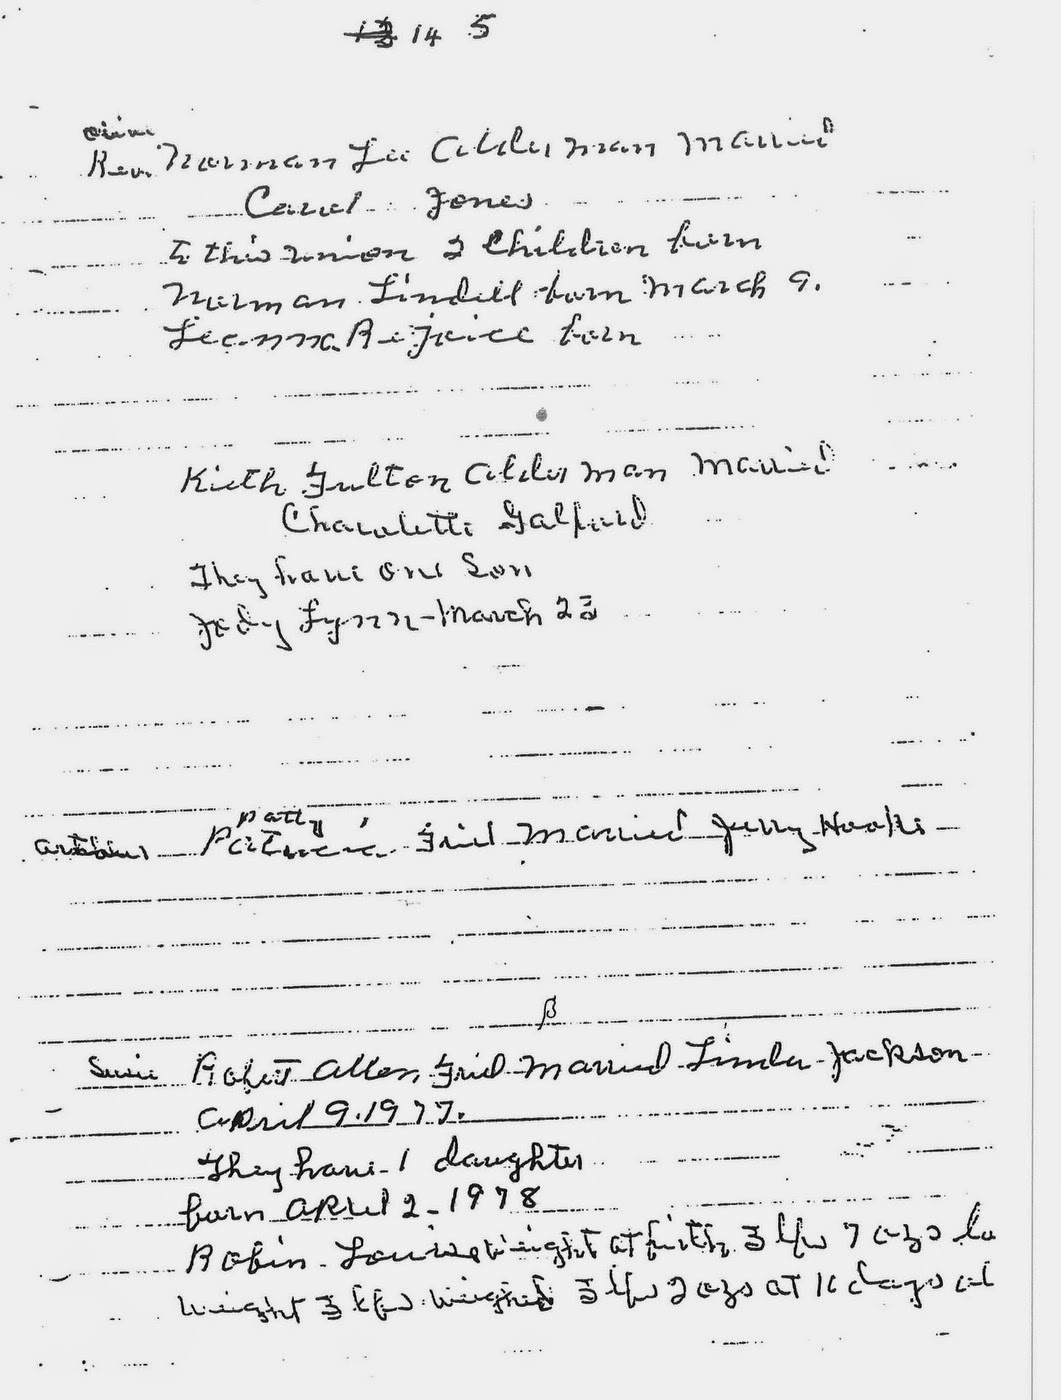 14 5
Rev. Norman Lee Alderman Married
Carol Jones
To this union 2 Children born
Norman Lindell born March 9.
Leanna Rejoice born
Kieth Fulton Alderman Married
Charolette Galford
They have one Son
Jody Lynn - March 23
Patty
Patricia Friel Married Jerry Hooks
Susie Robert Allen Friel Married Linda Jackson
April 9. 1977.
They have 1 daughter
born April 2 - 1978
Robin Louise weight at birth 3 lbs 7 ozs
weight 3 lbs weighed 3 lbs 2 ozs at 16 days